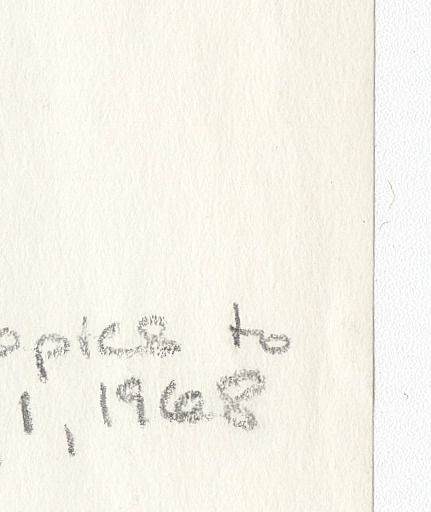 opics to
1, 1968